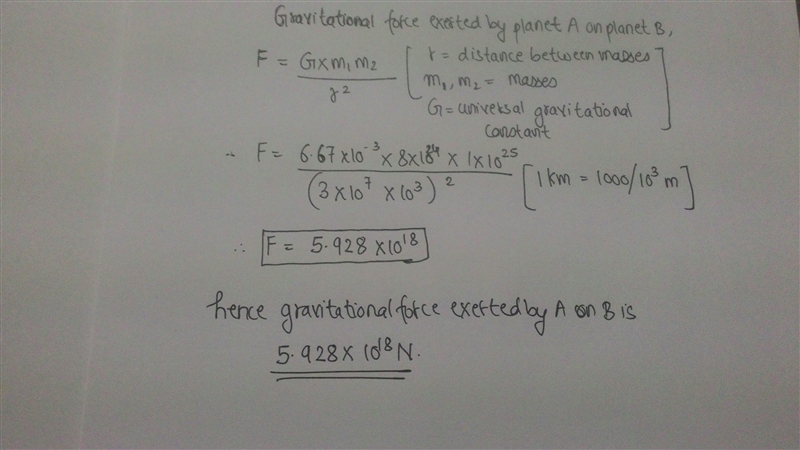 Gravitational force exerted by planet A on planet B,
F = G×m₁m₂ / r² [ r = distance between masses
m₁, m₂ = masses
G = universal gravitational
constant ]
∴ F = 6.67×10⁻³ × 8×10²⁴ × 1×10²⁵ / (3×10⁷ ×10³)² [1 km = 1000/10³ m]
∴ F = 5.928 ×10¹⁸
hence gravitational force exerted by A on B is
5.928 × 10¹⁸ N.